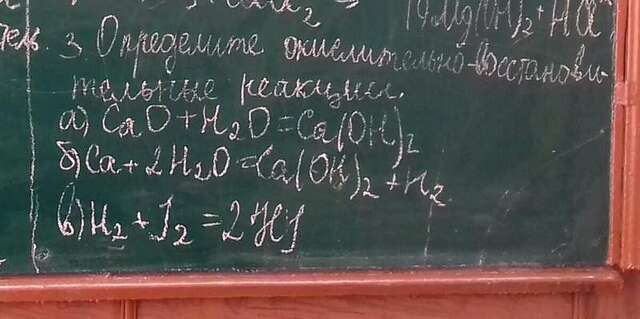 (OH)₂ + HCl
3. Определите окислительно-восстанови-
тельные реакции.
а) CaO + H₂O = Ca(OH)₂
б) Ca + 2H₂O = Ca(OH)₂ + H₂
в) H₂ + J₂ = 2HJ